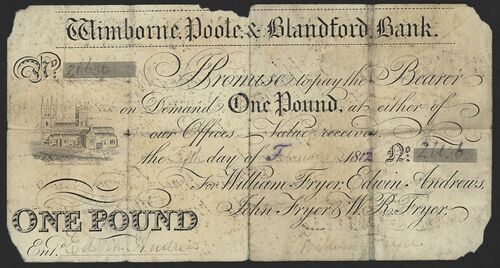 Wimborne, Poole, & Blandford, Bank.
No. 26636
I Promise to pay the Bearer
on Demand One Pound, at either of
our Offices Value received
the day of February 1812 No.
For William Fryer, Edwin Andrews,
John Fryer & W. R. Fryer.
ONE POUND
Entd. Edwin Andrews William Fryer